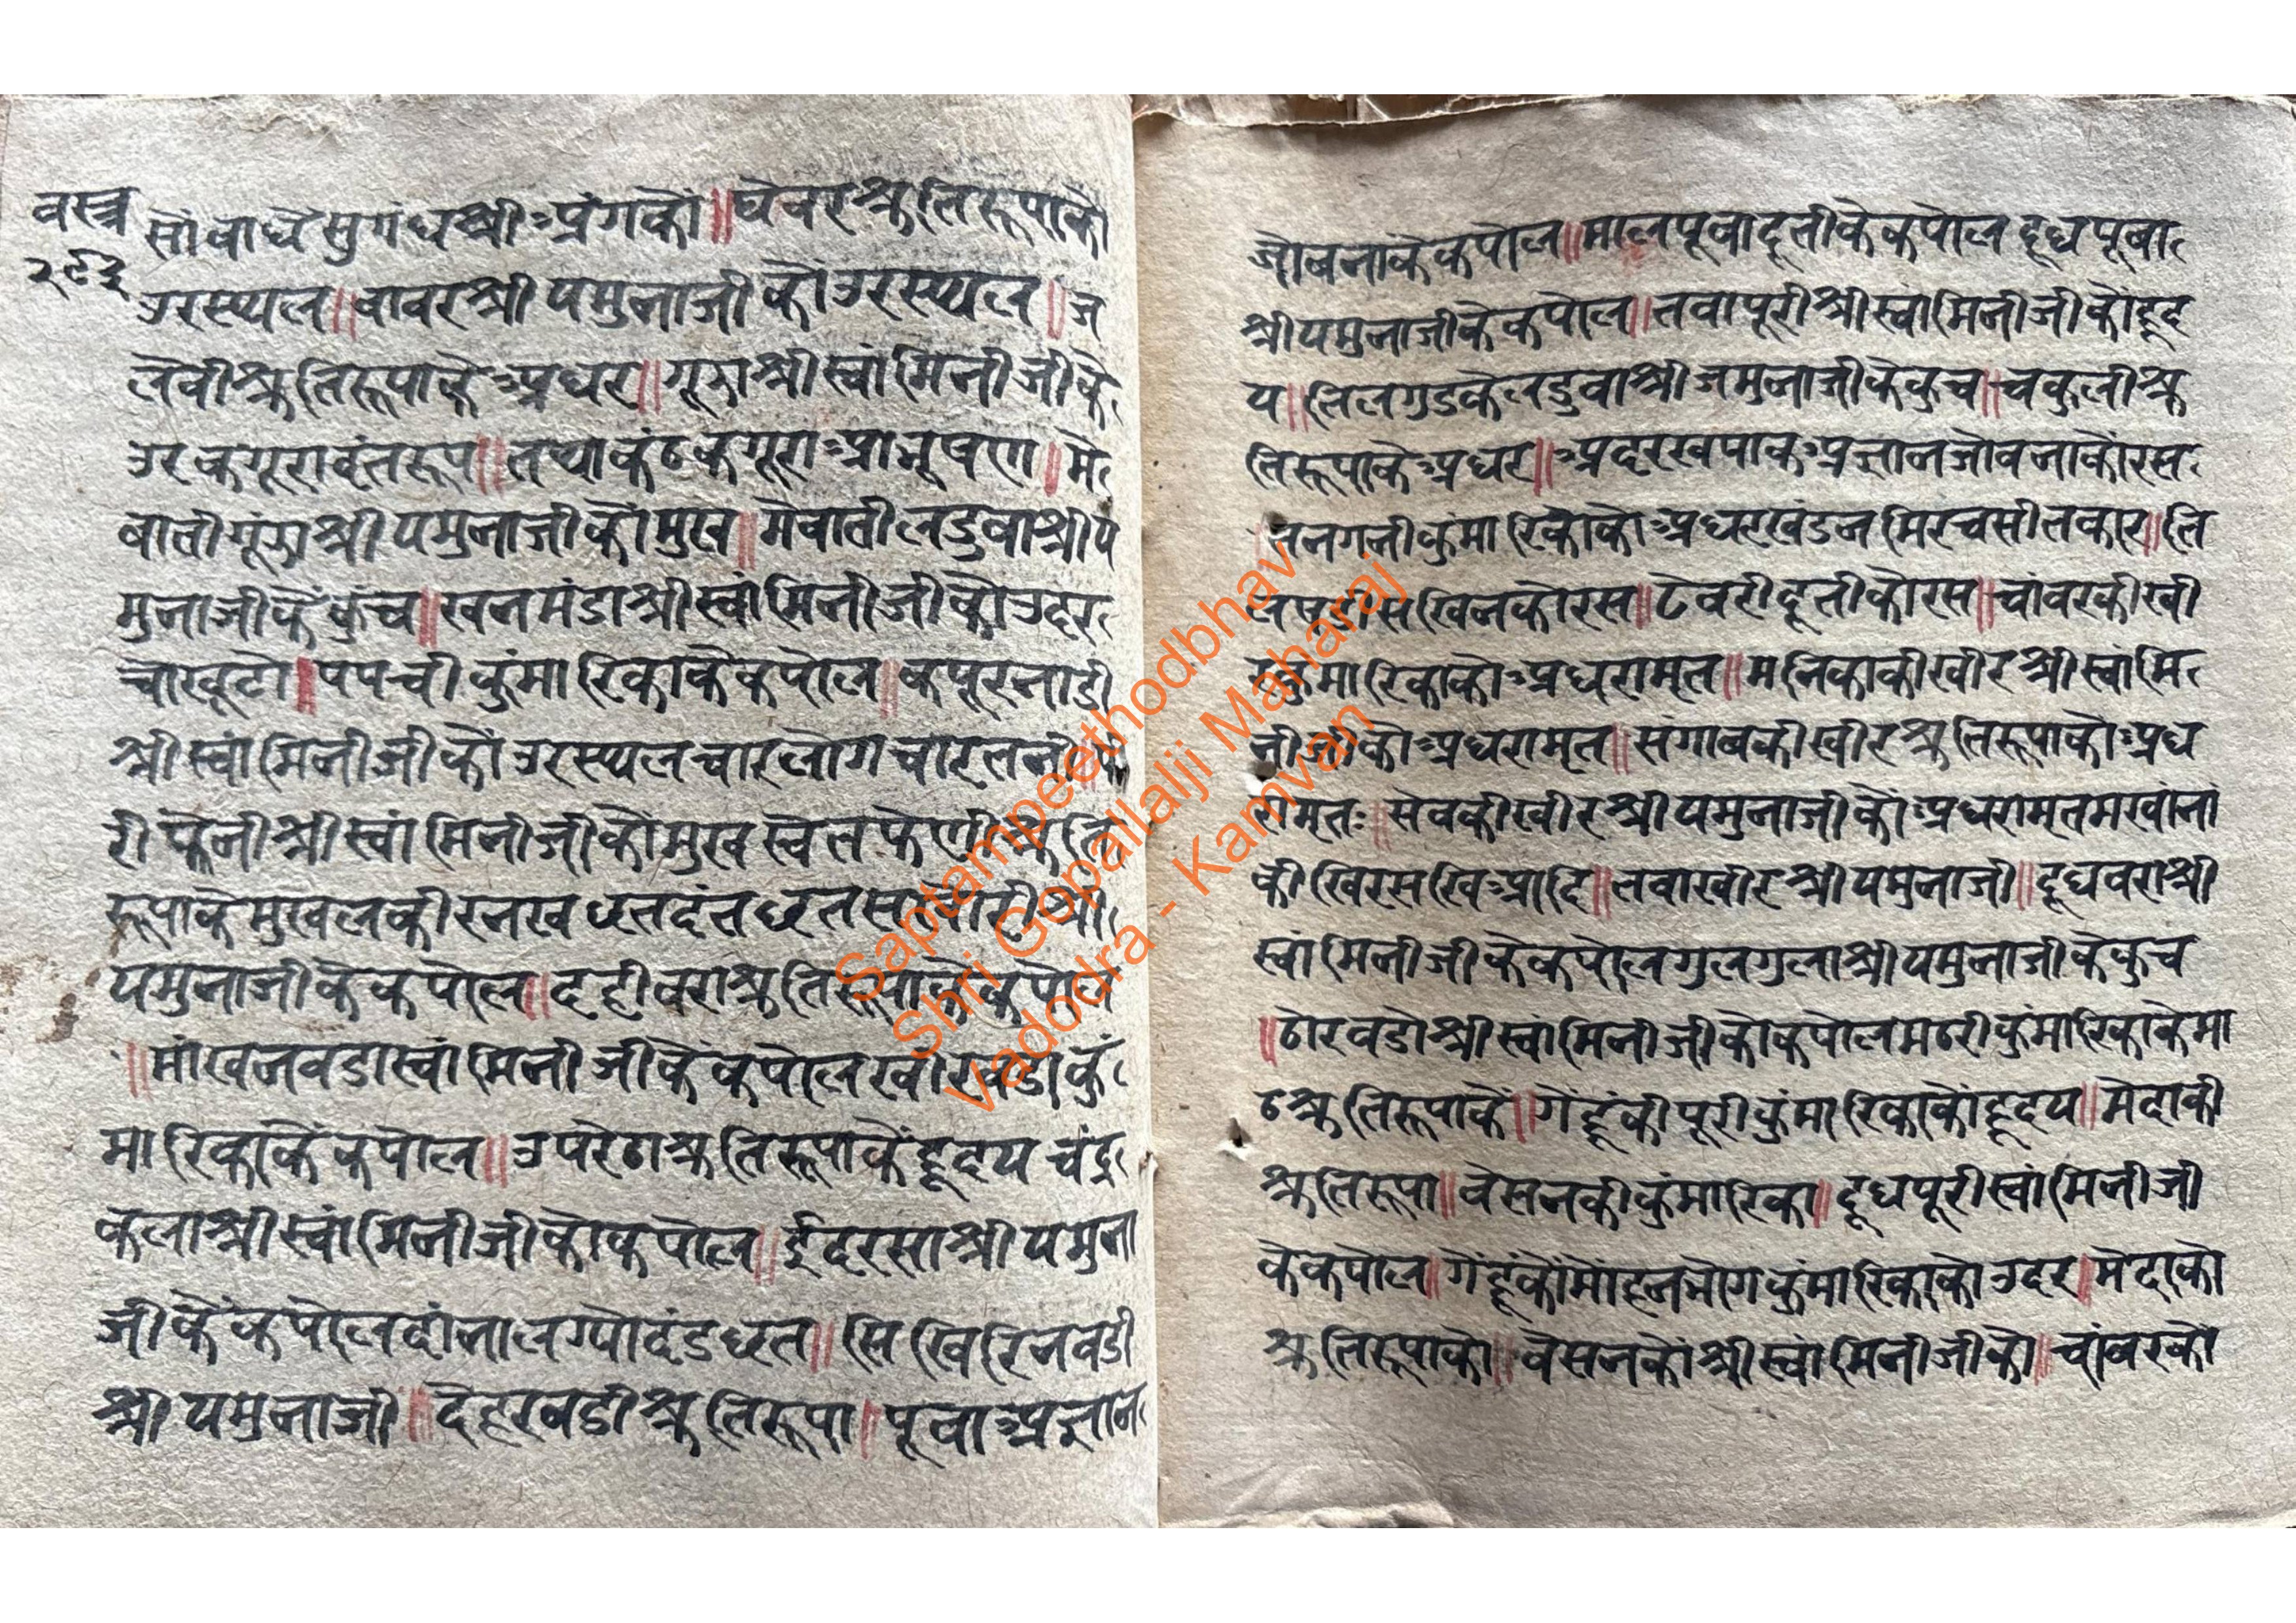 वस्त्र
२९३
सोंवाघे सुगंधश्री अंगकौ॥घेवरश्रुतिरूपाकौ
उरस्थल॥वावरश्रीयमुनाजीकौउरस्थल॥ज
लेवीश्रुतिरूपाके अधर॥गूझाश्रीस्वांमिनीजीके
उरकगूरावृंतरूप॥तथाकंठकगूराआभूषण॥मे
वातीगूंझाश्रीयमुनाजीकौमुख॥मेवातीलडुवाश्रीय
मुनाजीकेकुंच॥खनमंडाश्रीस्वांमिनीजीकौउदर
चोखूटो॥पपचीकुंमारिकाकेकपोल॥कपूरनाडी
श्रीस्वांमिनीजीकौउरस्थलचारलोगचारतनी॥
री फेनीश्रीस्वांमिनीजीकौमुखस्वेतफेणीश्रुति
रूपाकेमुखलकीरनखछतदंतछत श्री
यमुनाजीकेकपोल॥दहीवराश्रुतिरूपाकेकपोल
॥मांखनवडास्वांमिनीजीकेकपोलखीरवडाकुं
मारिकाकेकपोल॥उपरेठाश्रुतिरूपाकेंहृदयचंद्र
कलाश्रीस्वांमिनीजीकोकपोल॥ईदरसाश्रीयमुना
जीकेकपोलदांनालग्योदंडछत॥सिखिरिनवडी
श्रीयमुनाजी॥देहरवडीश्रुतिरूपा॥पूवाअज्ञान
जोबनाकेकपोल॥मालपूवादूतीकेकपोलदूधपूवा
श्रीयमुनाजीकेकपोल॥तवापूरीश्रीस्वांमिनीजीकौहृद
य॥तिलगुडकेलडुवाश्रीजमुनाजीकेकुच॥चकुलीश्रु
तिरूपाकेअधर॥अदरखपाकअज्ञानजोवनाकौरस
तनगनीकुंमारिकाकोअधरखंडनमिरचसीतकार॥ति
लषडीसखिनकोरस॥टेवरीदूतीकोरस॥चांवरकीखी
रकुमारिकाकोअधरामृत॥मनिकाकीखीरश्रीस्वांमि
नीजीकोअधरामृत॥संगाबकीखीरश्रुतिरूपाकोअध
रामृतः॥सेवकीखीरश्रीयमुनाजीकौंअधरामृतमखांनां
कीखिरसखिआदि॥लवाखीरश्रीयमुनाजी॥दूधवराश्री
स्वांमिनीजीकेकपोलगुलगुलाश्रीयमुनाजीकेकुच
॥ठोरवडोश्रीस्वांमिनीजीकोकपोलमठरीकुंमारिकाकेमा
ठश्रुतिरूपाकें॥गेंहूंकीपूरीकुंमारिकाकोंहृदय॥मेदाकी
श्रुतिरूपा॥वेसनकीकुंमारिका॥दूधपूरीस्वांमिनीजी
केकपोल॥गेंहूंकोंमोंहनभोगकुंमारिकाकोउदर॥मेदाको
श्रुतिरूपाको॥वेसनकोंश्रीस्वांमिनीजीको॥चांवरको
Saptampeethodbhav
Shri Gopallalji Maharaj
Vadodra - Kamvan